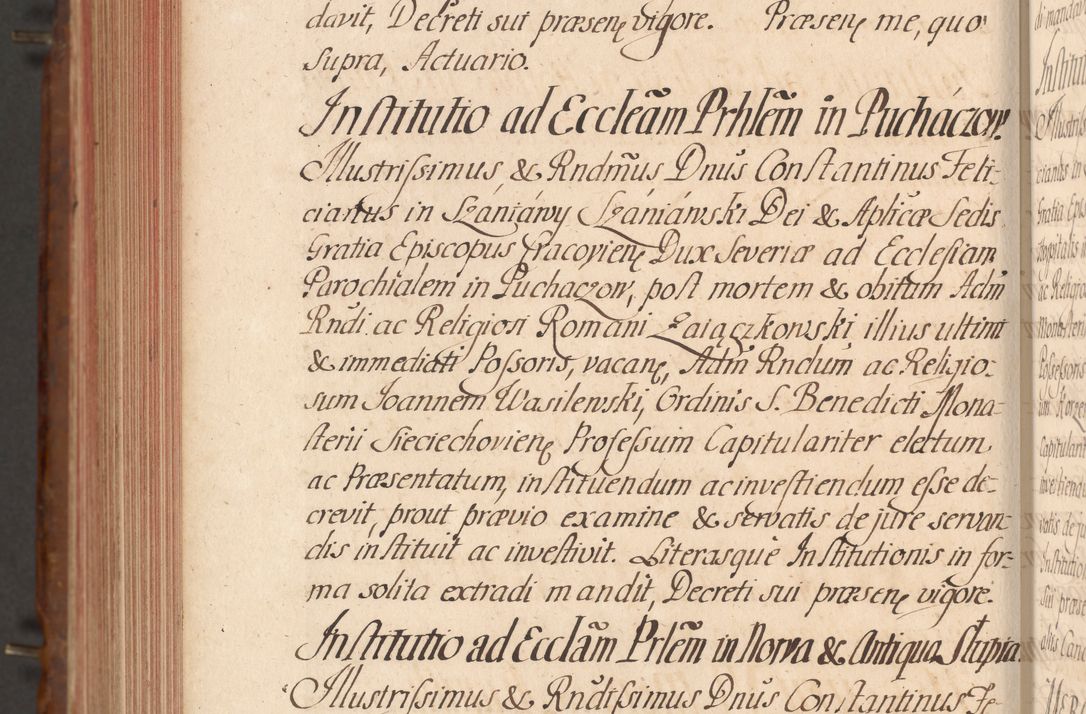 davit, Decreti sui præsenę vigore. Præsenę me, quo
supra, Actuario.
Institutio ad Eccleãm Prhlẽm in Pucháczow.
Illustrissimus & Rndm̃us Dnus Constantinus Feli-
cianus in Szaniáwy Szaniáwski Dei & Aplicæ Sedis
Gratia Episcopus Cracovienę Dux Severiæ ad Ecclesiam
Parochialem in Puchaczow, post mortem & obitum Adm̃
Rndi. ac Religiosi Romani Zaiączkowski illius ultimi
& immediati Possoris, vacanę, Adm̃ Rndum ac Religio-
sum Joannem Wasilewski, Ordinis S. Benedicti Mona-
sterii Sieciechovienę Professum Capitulariter electum
ac Præsentatum, instituendum ac investiendum esse de-
crevit, prout prævio examine & servatis de jure servan-
dis instituit ac investivit. Literasque Institutionis in for-
ma solita extradi mandit, Decreti sui præsenę vigore.
Institutio ad Ecclãm Prlẽm in Nova & Antiqua Słupia
Illustrissimus & Rndissimus Dnus Constantinus Fe-